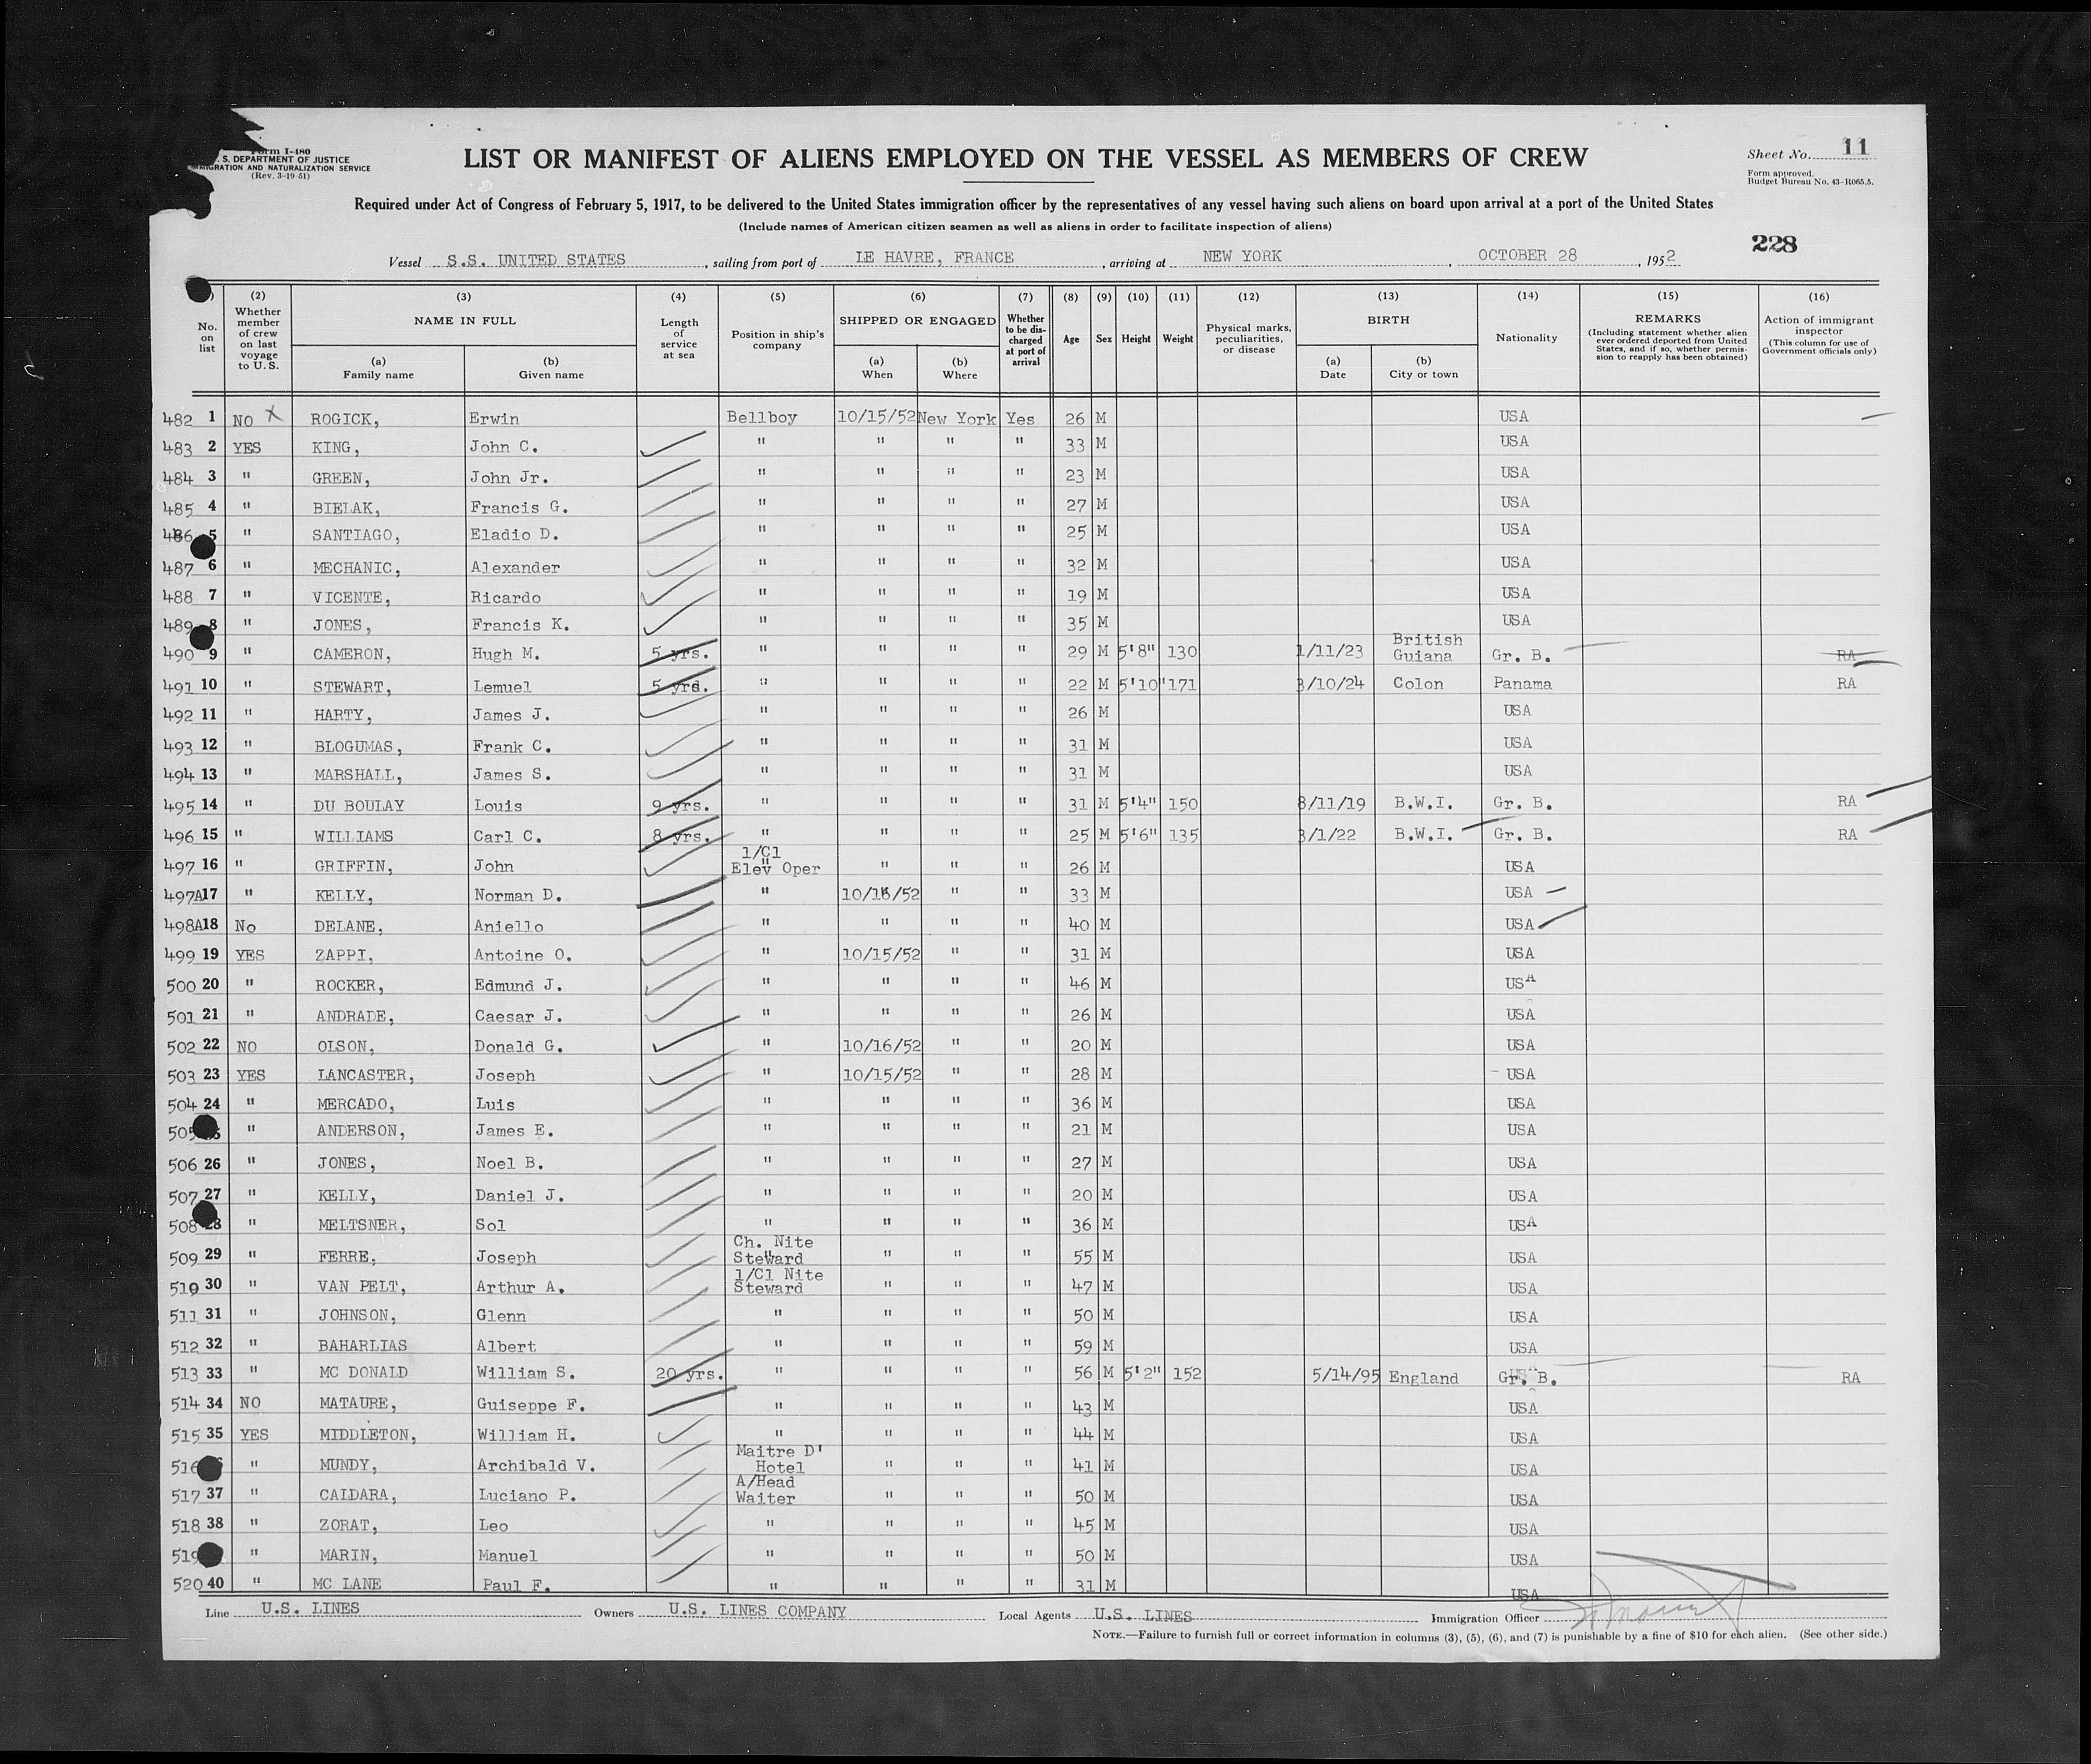 Form I-480
S. DEPARTMENT OF JUSTICE
IMMIGRATION AND NATURALIZATION SERVICE
(Rev. 3-19-51)
LIST OR MANIFEST OF ALIENS EMPLOYED ON THE VESSEL AS MEMBERS OF CREW
Sheet No. 11
Form approved.
Budget Bureau No. 43-R065.5.
Required under Act of Congress of February 5, 1917, to be delivered to the United States immigration officer by the representatives of any vessel having such aliens on board upon arrival at a port of the United States
(Include names of American citizen seamen as well as aliens in order to facilitate inspection of aliens)
228
Vessel S.S. UNITED STATES, sailing from port of LE HAVRE, FRANCE, arriving at NEW YORK, OCTOBER 28, 1952
(2) (3) (4) (5) (6) (7) (8) (9) (10) (11) (12) (13) (14) (15) (16)
No. on list
Whether member of crew on last voyage to U.S.
NAME IN FULL
(a) Family name
(b) Given name
Length of service at sea
Position in ship's company
SHIPPED OR ENGAGED
(a) When
(b) Where
Whether to be discharged at port of arrival
Age
Sex
Height
Weight
Physical marks, peculiarities, or disease
BIRTH
(a) Date
(b) City or town
Nationality
REMARKS
(Including statement whether alien ever ordered deported from United States, and if so, whether permission to reapply has been obtained)
Action of immigrant inspector
(This column for use of Government officials only)
482 1 NO X ROGICK, Erwin Bellboy 10/15/52 New York Yes 26 M USA
483 2 YES KING, John C. " " " " 33 M USA
484 3 " GREEN, John Jr. " " " " 23 M USA
485 4 " BIELAK, Francis G. " " " " 27 M USA
486 5 " SANTIAGO, Eladio D. " " " " 25 M USA
487 6 " MECHANIC, Alexander " " " " 32 M USA
488 7 " VICENTE, Ricardo " " " " 19 M USA
489 8 " JONES, Francis K. " " " " 35 M USA
490 9 " CAMERON, Hugh M. 5 yrs. " " " " 29 M 5'8" 130 1/11/23 British Guiana Gr. B. RA
491 10 " STEWART, Lemuel 5 yrd. " " " " 22 M 5'10" 171 3/10/24 Colon Panama RA
492 11 " HARTY, James J. " " " " 26 M USA
493 12 " BLOGUMAS, Frank C. " " " " 31 M USA
494 13 " MARSHALL, James S. " " " " 31 M USA
495 14 " DU BOULAY Louis 9 yrs. " " " " 31 M 5'4" 150 8/11/19 B.W.I. Gr. B. RA
496 15 " WILLIAMS Carl C. 8 yrs. " " " " 25 M 5'6" 135 3/1/22 B.W.I. Gr. B. RA
497 16 " GRIFFIN, John 1/Cl Elev Oper " " " 26 M USA
497A 17 " KELLY, Norman D. " 10/16/52 " " 33 M USA
498A 18 No DELANE, Aniello " " " " 40 M USA
499 19 YES ZAPPI, Antoine O. " 10/15/52 " " 31 M USA
500 20 " ROCKER, Edmund J. " " " " 46 M USA
501 21 " ANDRADE, Caesar J. " " " " 26 M USA
502 22 NO OLSON, Donald G. " 10/16/52 " " 20 M USA
503 23 YES LANCASTER, Joseph " 10/15/52 " " 28 M USA
504 24 " MERCADO, Luis " " " " 36 M USA
505 " ANDERSON, James E. " " " " 21 M USA
506 26 " JONES, Noel B. " " " " 27 M USA
507 27 " KELLY, Daniel J. " " " " 20 M USA
508 28 " MELTSNER, Sol " " " " 36 M USA
509 29 " FERRE, Joseph Ch. Nite Steward " " " 55 M USA
510 30 " VAN PELT, Arthur A. 1/Cl Nite Steward " " " 47 M USA
511 31 " JOHNSON, Glenn " " " " 50 M USA
512 32 " BAHARLIAS Albert " " " " 59 M USA
513 33 " MC DONALD William S. 20 yrs. " " " " 56 M 5'2" 152 5/14/95 England Gr. B. RA
514 34 NO MATAURE, Guiseppe F. " " " " 43 M USA
515 35 YES MIDDLETON, William H. " " " " 44 M USA
516 " MUNDY, Archibald V. Maitre D' Hotel " " " 41 M USA
517 37 " CALDARA, Luciano P. A/Head Waiter " " " 50 M USA
518 38 " ZORAT, Leo " " " " 45 M USA
519 " MARIN, Manuel " " " " 50 M USA
520 40 " MC LANE Paul F. " " " " 31 M USA
Line U.S. LINES Owners U.S. LINES COMPANY Local Agents U.S. LINES Immigration Officer
NOTE.—Failure to furnish full or correct information in columns (3), (5), (6), and (7) is punishable by a fine of $10 for each alien. (See other side.)